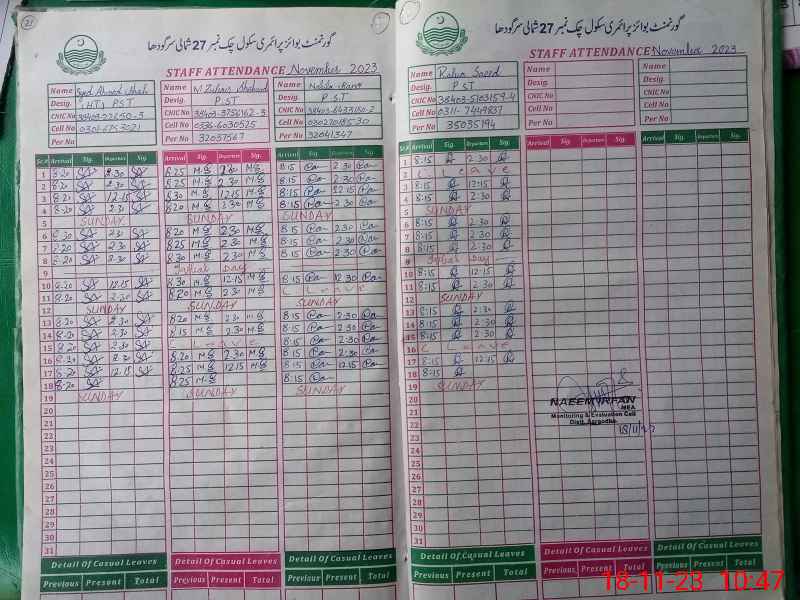 21
گورنمنٹ بوائز پرائمری سکول چک نمبر 27 شمالی سرگودھا
STAFF ATTENDANCE November 2023
Name Syed Ahmad Shah
Desig. PST
CNIC No
Cell No
Per No
Name M
Desig. PST
CNIC No 38403-3756162-3
Cell No 0336-6030525
Per No 32037567
Name Nabila
Desig. PST
CNIC No
Cell No
Per No 32041347
Sr.# Arrival Sig. Departure Sig. Arrival Sig. Departure Sig. Arrival Sig. Departure Sig.
1 8:20 2:30 8:25 M.S 2:30 M.S 8:15 2:30
2 8:20 2:30 8:25 M.S 2:30 M.S 8:15 2:30
3 8:20 12:15 8:30 M.S 12:15 M.S 8:15 12:15
4 8:20 2:30 8:20 M.S 2:30 M.S 8:15 2:30
5 SUNDAY SUNDAY SUNDAY
6 8:20 2:30 8:20 M.S 2:30 M.S 8:15 2:30
7 8:20 2:30 8:25 M.S 2:30 M.S 8:15 2:30
8 8:20 2:30 8:30 M.S 2:30 M.S 8:15 2:30
9 Iqbal Day
10 8:20 12:15 8:30 M.S 12:15 M.S 8:15 12:30
11 8:20 2:30 8:20 M.S 2:30 M.S C Leave
12 SUNDAY SUNDAY SUNDAY
13 8:20 2:30 8:20 M.S 2:30 M.S 8:15 2:30
14 8:20 2:30 8:15 M.S 2:30 M.S 8:15 2:30
15 8:20 2:30 C Leave 8:15 2:30
16 8:20 2:30 8:20 M.S 2:30 M.S 8:15 2:30
17 8:20 12:15 8:25 M.S 12:15 M.S 8:15 12:15
18 8:20 8:25 M.S 8:15
19 SUNDAY SUNDAY SUNDAY
20
21
22
23
24
25
26
27
28
29
30
31
Detail Of Casual Leaves Detail Of Casual Leaves Detail Of Casual Leaves
Previous Present Total Previous Present Total Previous Present Total
گورنمنٹ بوائز پرائمری سکول چک نمبر 27 شمالی سرگودھا
STAFF ATTENDANCE November 2023
Name Saeed
Desig. PST
CNIC No 38403-5103159-4
Cell No 0311-7449837
Per No 35035194
Name
Desig.
CNIC No
Cell No
Per No
Name
Desig.
CNIC No
Cell No
Per No
Sr.# Arrival Sig. Departure Sig. Arrival Sig. Departure Sig. Arrival Sig. Departure Sig.
1 8:15 2:30
2 C Leave
3 8:15 12:15
4 8:15 2:30
5 SUNDAY
6 8:15 2:30
7 8:15 2:30
8 8:15 2:30
9 Iqbal Day
10 8:15 12:15
11 8:15 2:30
12 SUNDAY
13 8:15 2:30
14 8:15 2:30
15 8:15 2:30
16 C Leave
17 8:15 12:15
18 8:15
19 SUNDAY
20
21
22
23
24
25
26
27
28
29
30
31
NAEEM IRFAN
MEA
Monitoring & Evaluation Cell
Distt. Sargodha
18/11/23
Detail Of Casual Leaves Detail Of Casual Leaves Detail Of Casual Leaves
Previous Present Total Previous Present Total Previous Present Total
18-11-23 10:47